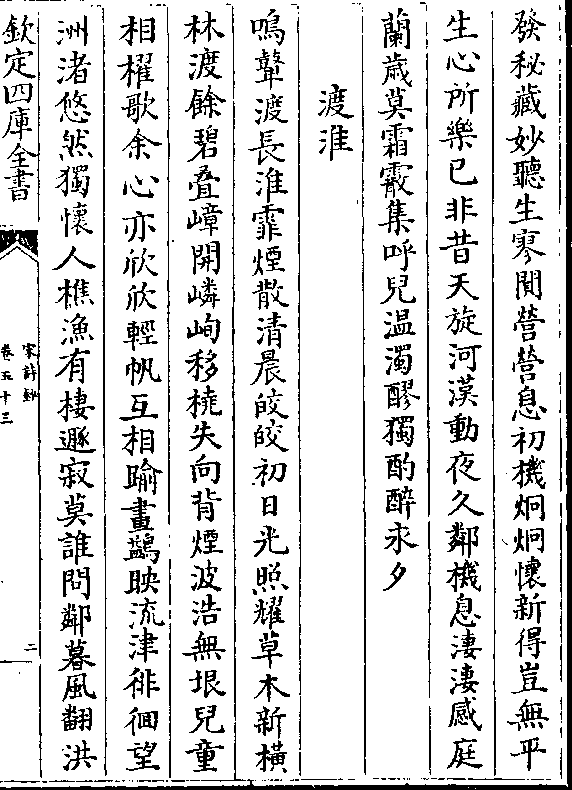 發秘藏妙聽生寥閴營營息初機炯炯懷新得豈無平
生心所樂已非昔天旋河漢動夜久鄰機息淒淒感庭
蘭歳莫霜霰集呼兒温濁醪獨酌醉永夕
渡淮
鳴鼙渡長淮霏煙散清晨皎皎初日光照耀草木新横
林渡餘碧疊嶂開嶙峋移橈失向背煙波浩無垠兒童
相櫂歌余心亦欣欣輕帆互相踰畫鷁映流津徘徊望
洲渚悠然獨懷人樵漁有棲遯寂莫誰問鄰暮風翻洪
欽定四庫全書
宋詩鈔
卷五十三
二